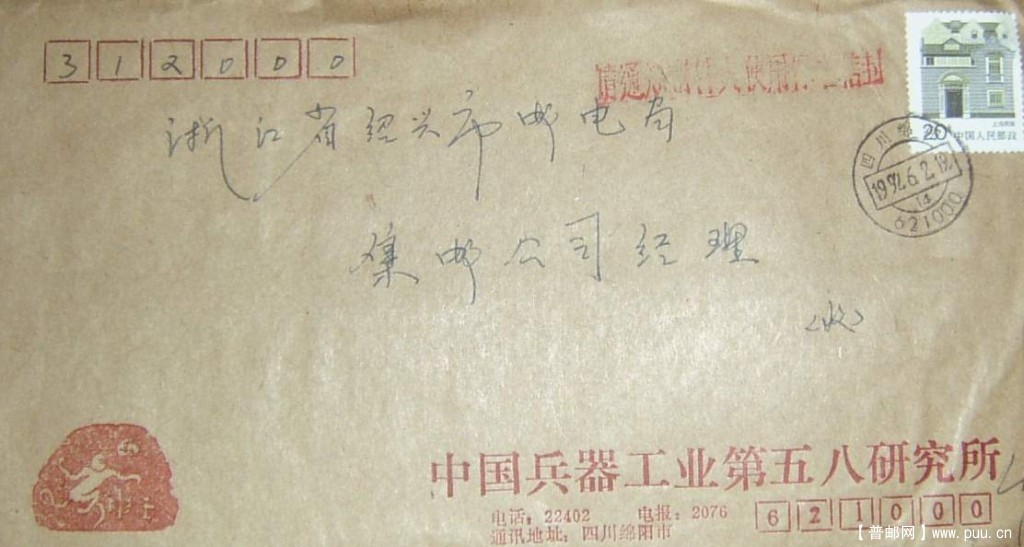 312000
请通知寄件人使用标准信封
上海民居
20
中国人民邮政
浙江省绍兴市邮电局
四川绵
1992.6.2.19
14
621000
集邮公司经理
(收)
中国兵器工业第五八研究所
电话：22402 电报：2076 621000
通讯地址：四川绵阳市
【普邮网】www.puu.cn